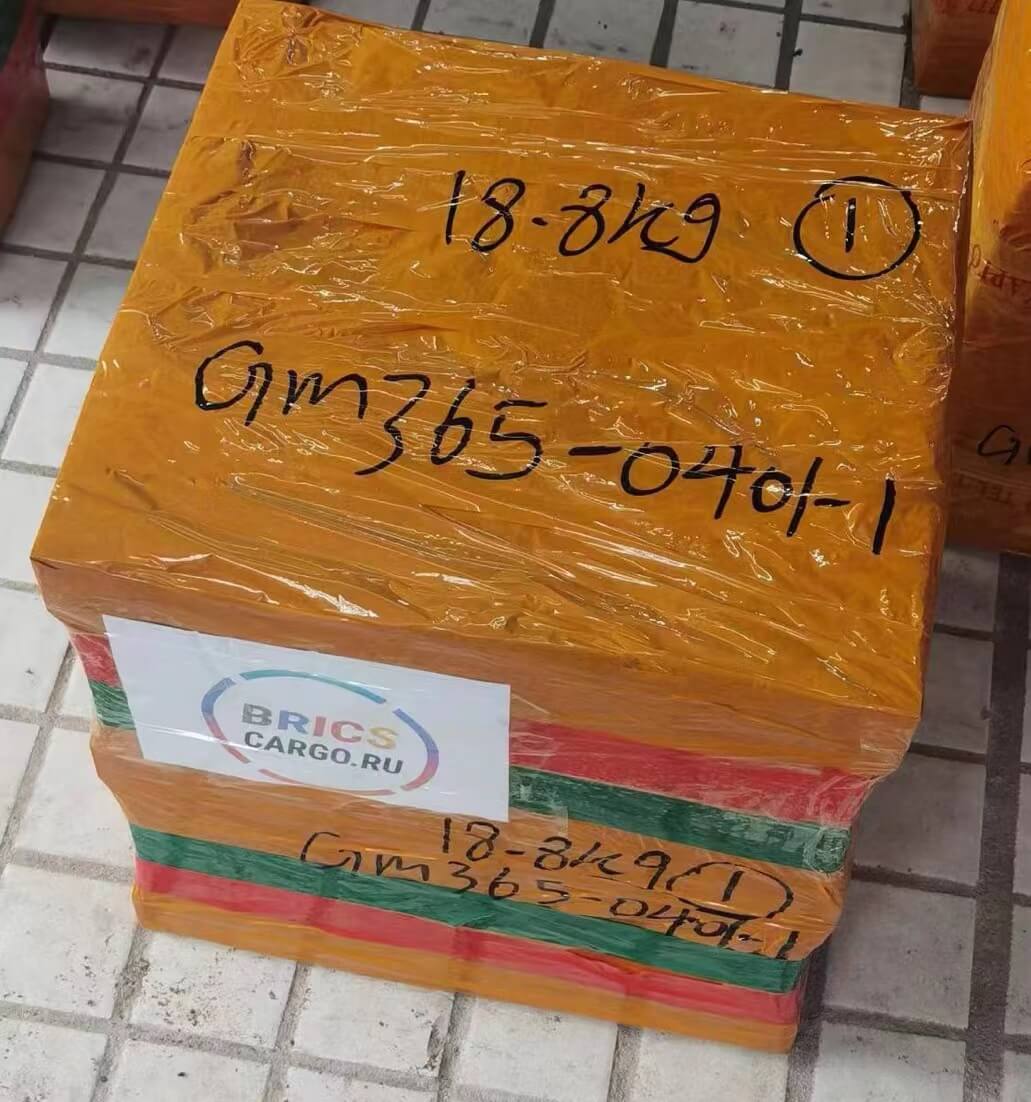 18-8kg ①
GM365-0401-1
BRICS
CARGO.RU
18-8kg ①
GM365-0401-1